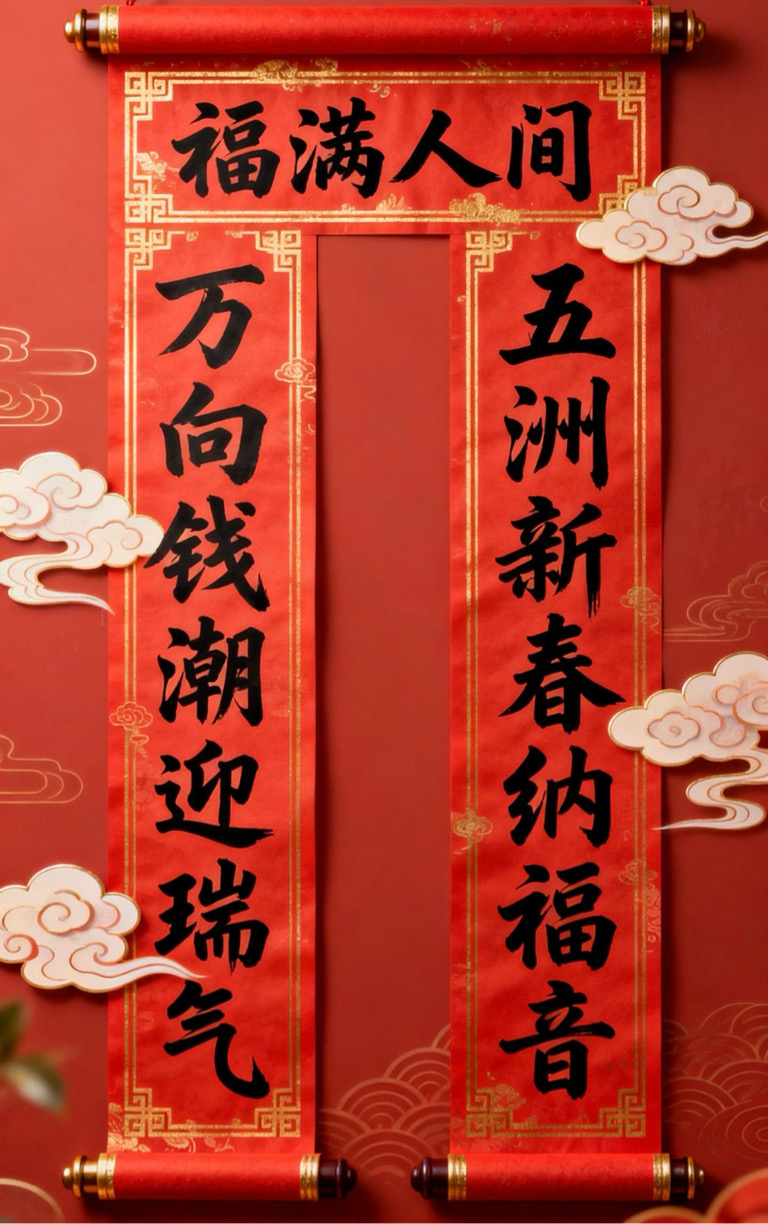 福满人间
万向钱潮迎瑞气
五洲新春纳福音